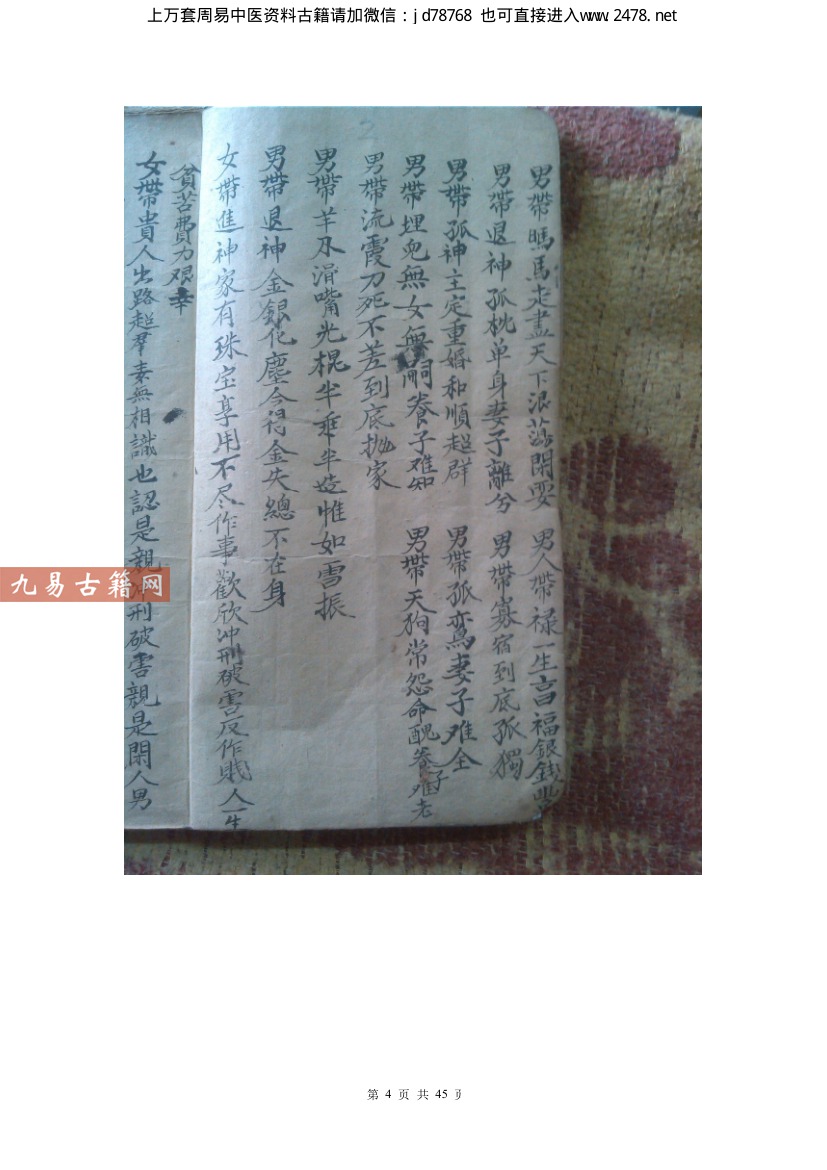 上万套周易中医资料古籍请加微信：jd78768 也可直接进入www.2478.net
男帶馬走盡天下浪蕩閑耍 男人帶祿一生富福銀錢豐
男帶退神孤枕单身妻子離兮 男帶寡宿到底孤獨
男帶孤神主定重婚和順超群 男帶孤鸞妻子难全
男帶埋兒無女無嗣養子难知 男帶天狗常怨命醜養子难老
男帶流霞刀死不差到底抛家
男帶羊刃滑嘴光棍半乖半造惟如雪振
男帶退神金銀化塵今得金失總不在身
女帶進神家有珠宝享用不尽作事歡欣冲刑破害反作贱人一生
貧苦費力艰辛
女帶貴人出路超羣素無相識也認是親冲刑破害親是閑人男
九易古籍网
第 4 页 共 45 页